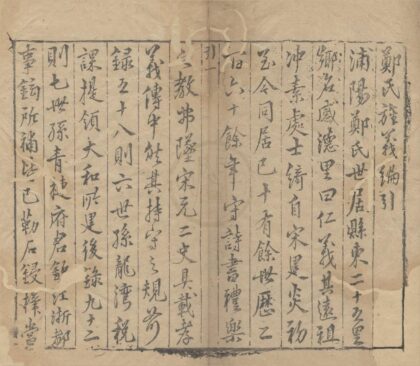 鄭氏旌義編引
浦陽鄭氏世居縣東二十五里
鄉名感德里曰仁義其遠祖
冲素處士綺自宋建炎初
至今同居已十有餘世歷二
百六十餘年守詩書禮樂
引一
之教弗墜宋元二史具載孝
義傳中然其持守之規前
録五十八則六世孫龍灣稅
課提領大和所建後錄九十二
則七世孫青槤府君欽江浙都
事鉉所補皆已勒石鋟梓當